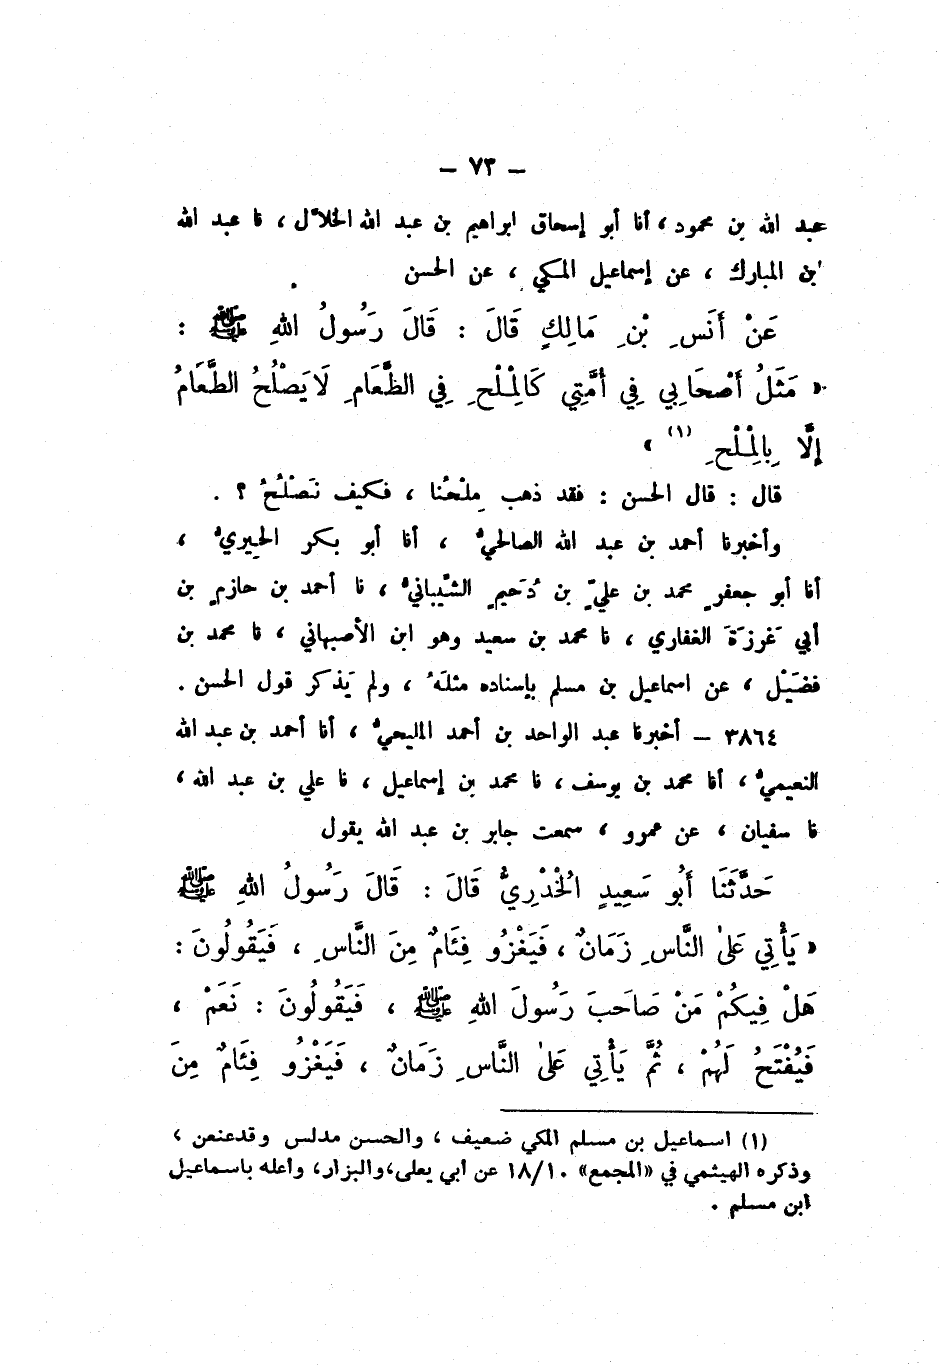 – ٧٣ –
عبد الله بن محمود ، أنا أبو إسحاق ابراهيم بن عبد الله الخلاّل ، نا عبد الله
ابن المبارك ، عن إسماعيل المكي ، عن الحسن
عَنْ أَنَسِ بْنِ مَالِكٍ قَالَ : قَالَ رَسُولُ اللهِ ﷺ :
« مَثَلُ أَصْحَابِي فِي أُمَّتِي كَالْمِلْحِ فِي الطَّعَامِ لَا يَصْلُحُ الطَّعَامُ
إِلَّا بِالْمِلْحِ (١) »
قال : قال الحسن : فقد ذهب مِلْحُنا ، فكيف نَصْلُحُ ؟ .
وأخبرنا أحمد بن عبد الله الصالحيُّ ، أنا أبو بكر الحِيريُّ ،
أنا أبو جعفرٍ محمد بن عليِّ بن دُحَيمٍ الشَّيبانيُّ ، نا أحمد بن حازمٍ بن
أبي غَرزَةَ الغفاري ، نا محمد بن سعيد وهو ابن الأصبهاني ، نا محمد بن
فضَيْل ، عن اسماعيل بن مسلم بإسناده مثلَهُ ، ولم يَذكر قول الحسن .
٣٨٦٤ – أخبرنا عبد الواحد بن أحمد المليحيُّ ، أنا أحمد بن عبد الله
النعيميُّ ، أنا محمد بن يوسف ، نا محمد بن إسماعيل ، نا علي بن عبد الله ،
نا سفيان ، عن عمرو ، سمعت جابر بن عبد الله يقول
حَدَّثَنَا أَبُو سَعِيدٍ الْخُدْرِيُّ قَالَ : قَالَ رَسُولُ اللهِ ﷺ
« يَأْتِي عَلىٰ النَّاسِ زَمَانٌ ، فَيَغْزُو فِئَامٌ مِنَ النَّاسِ ، فَيَقُولُونَ :
هَلْ فِيكُمْ مَنْ صَاحَبَ رَسُولَ اللهِ ﷺ ، فَيَقُولُونَ : نَعَمْ ،
فَيُفْتَحُ لَهُمْ ، ثُمَّ يَأْتِي عَلىٰ النَّاسِ زَمَانٌ ، فَيَغْزُو فِئَامٌ مِنَ
(١) اسماعيل بن مسلم المكي ضعيف ، والحسن مدلس وقدعنعن ،
وذكره الهيثمي في «المجمع» ١٨/١٠ عن أبي يعلى،والبزار، وأعله باسماعيل
ابن مسلم .